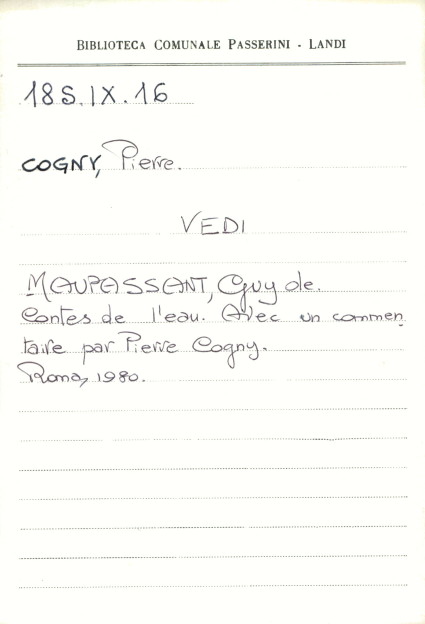 BIBLIOTECA COMUNALE PASSERINI - LANDI
18S.IX.16
COGNY, Pierre.
VEDI
MAUPASSANT, Guy de.
Contes de l'eau. Avec un commen
taire par Pierre Cogny.
Roma, 1980.